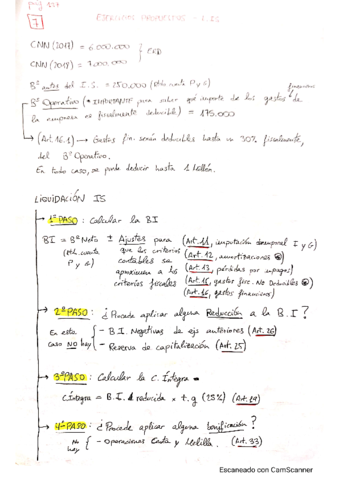 pág 127
7
EJERCICIOS PROPUESTOS - I.S.
CNN (2017) = 6.000.000
CNN (2018) = 7.000.000
ERD
Bº antes del I.S. = 250.000 (Rtdo. cuenta P y G)
financieros
Bº Operativo (* IMPORTANTE para saber qué importe de los gastos de
la empresa es fiscalmente deducible) = 175.000
(Art. 16.1) → Gastos fin. serán deducibles hasta un 30% fiscalmente,
del Bº Operativo.
En todo caso, se puede deducir hasta 1 Millón.
LIQUIDACIÓN IS
1º PASO: Calcular la BI
BI = Bº Neto ± Ajustes para (Art. 11, imputación temporal I y G)
(Rtdo. cuenta P y G) que los criterios (Art. 12, amortizaciones)
contables se (Art. 13, pérdidas por impagos)
aproximen a los (Art. 15, gastos fisc. No Deducibles)
criterios fiscales (Art. 16, gastos financieros)
2º PASO: ¿Procede aplicar alguna Reducción a la B.I?
En este caso NO hay
- B.I. Negativas de ejs anteriores (Art. 26)
- Reserva de capitalización (Art. 25)
3º PASO: Calcular la C. Íntegra
C.Íntegra = B.I. reducida x t.g (25%) (Art. 29)
4º PASO: ¿Procede aplicar alguna bonificación?
No hay
- Operaciones Ceuta y Melilla. (Art. 33)
Escaneado con CamScanner